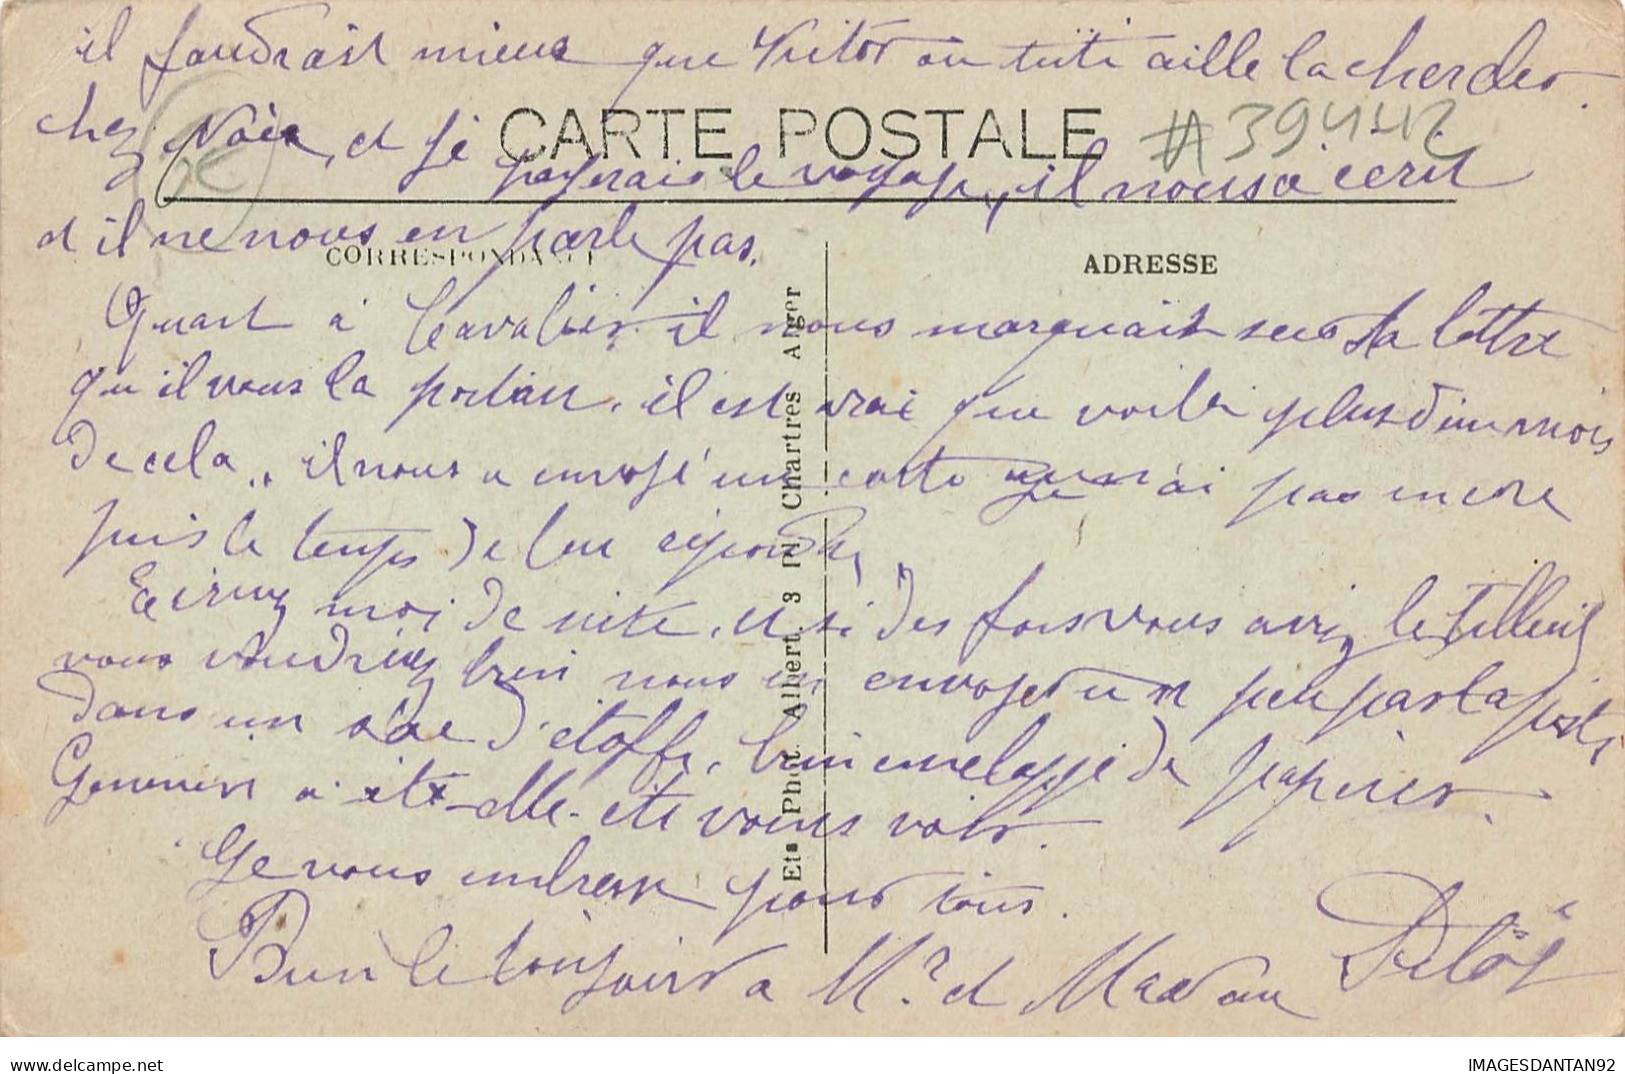 il faudrait mieux que Victor ou titi aille la chercher
chez Noix, et je payerais le voyage, il nous a écrit
CARTE POSTALE
#39442
et il ne nous en parle pas.
CORRESPONDANCE
ADRESSE
Quant à Cavalier, il nous marquait sur sa lettre
qu il vous la . il est vrai que voila plus d'un mois
de cela.. il nous a envoyé une carte je n'ai pas encore
puis le temps de lui repondre,
Ecrivez moi de suite, et si des fois vous aviez le tilleul
vous voudriez bien nous en envoyer un peu par la poste
dans un sac d'étoffe, bien enveloppé de papier.
a-t-elle été vous voir.
Je vous embrasse pour tous.
Bien le bonjour a Mr et Madame
Ets Phot. Albert, 3 Pl. Chartres Alger
IMAGESDANTAN92